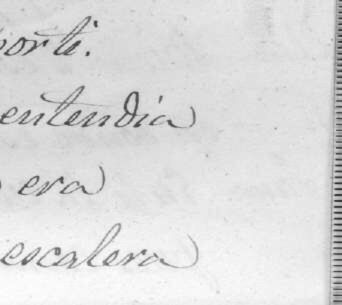 porti.
entendia
era
escalera